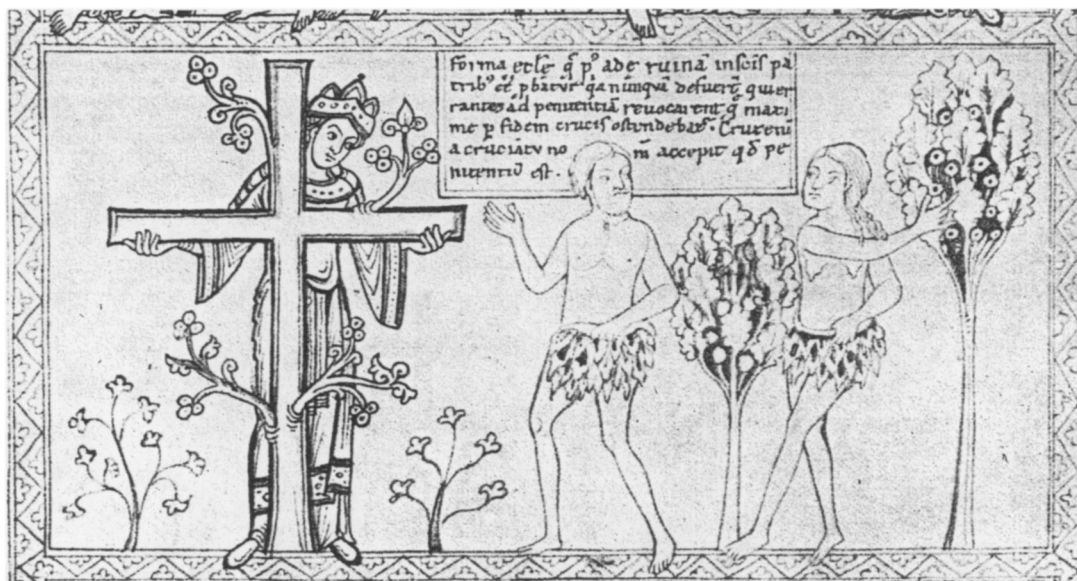 Forma eccle q̄ p' ade ruinā in scis pa
trib' cē pbatur q̄a nūnqvā defuerūt qui er
rantes ad penitentiā revocarent q̄ maxi
me p fidem crucis ostendebat. Crux enī
a cruciatu no m̄ accepit qđ pe
nitentiū est.